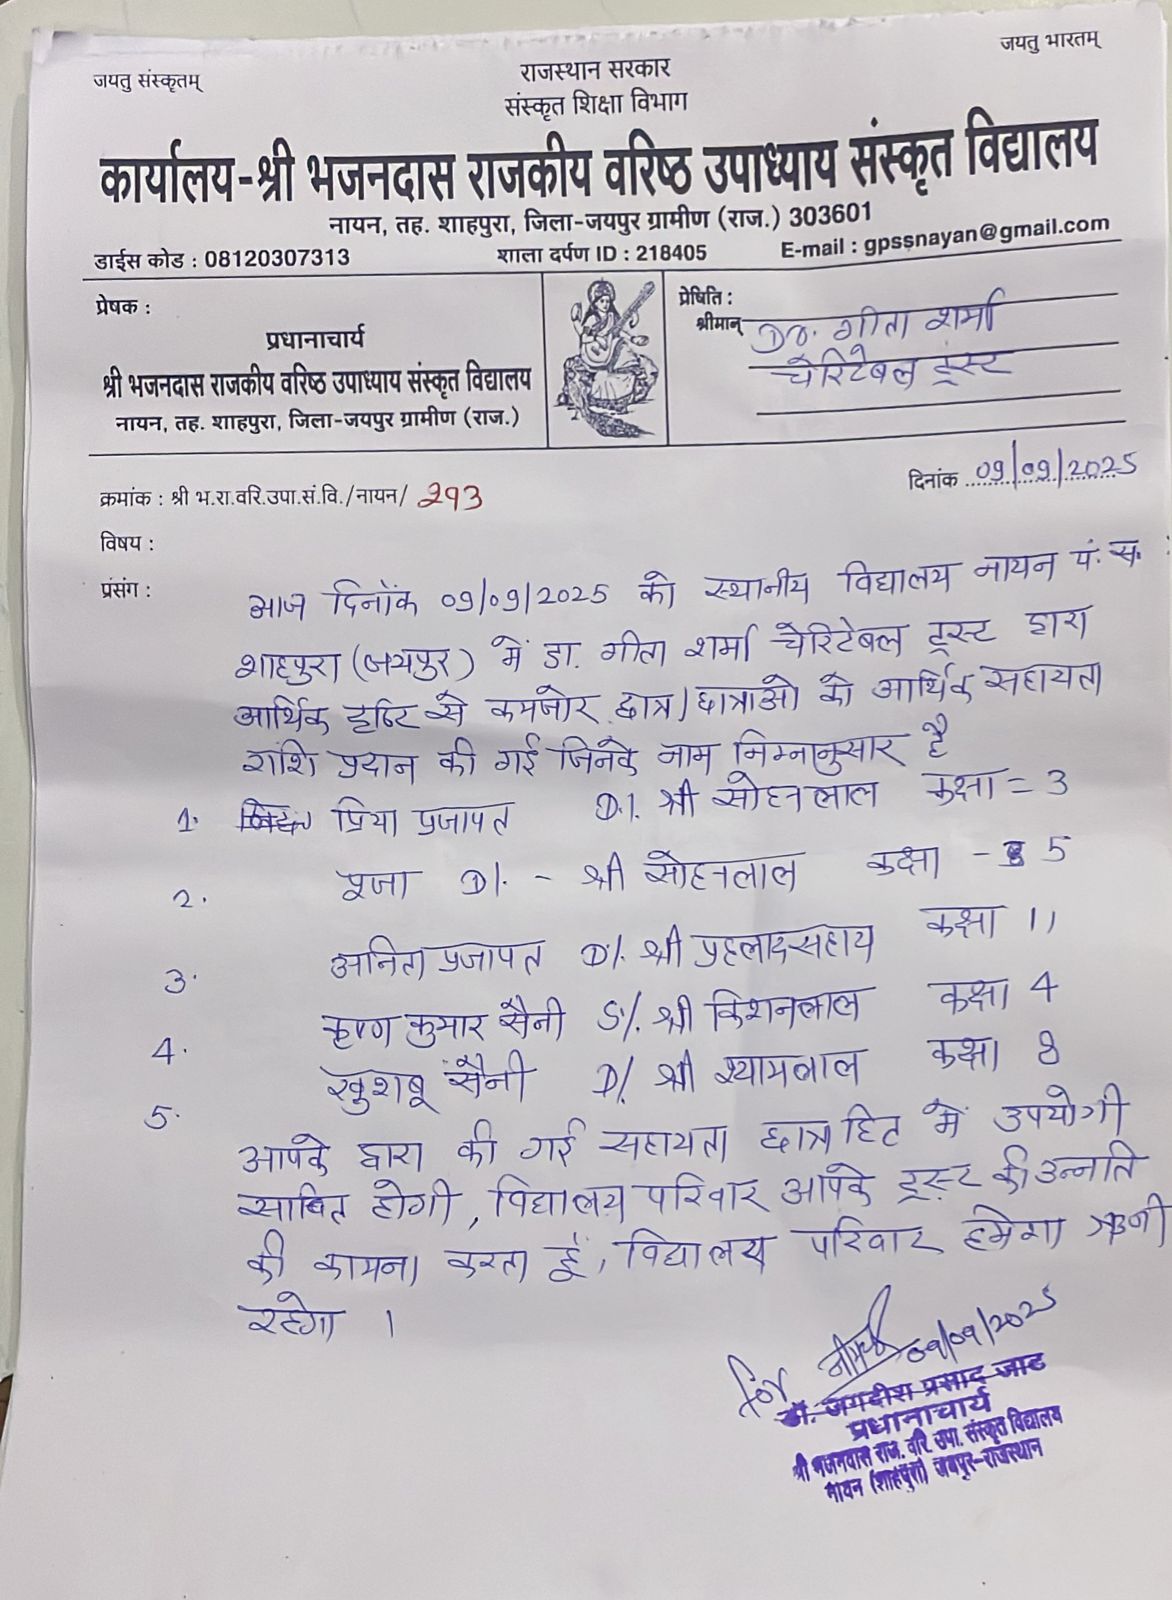 जयतु संस्कृतम्
जयतु भारतम्
राजस्थान सरकार
संस्कृत शिक्षा विभाग
कार्यालय-श्री भजनदास राजकीय वरिष्ठ उपाध्याय संस्कृत विद्यालय
नायन, तह. शाहपुरा, जिला-जयपुर ग्रामीण (राज.) 303601
डाईस कोड : 08120307313 शाला दर्पण ID : 218405 E-mail : gpssnayan@gmail.com
प्रेषक :
प्रधानाचार्य
श्री भजनदास राजकीय वरिष्ठ उपाध्याय संस्कृत विद्यालय
नायन, तह. शाहपुरा, जिला-जयपुर ग्रामीण (राज.)
प्रेषिति :
श्रीमान् Dr. गीता शर्मा
चेरिटेबल ट्रस्ट
क्रमांक : श्री भ.रा.वरि.उपा.सं.वि./नायन/ 293
दिनांक 09/09/2025
विषय :
प्रंसंग :
आज दिनाँक 09/09/2025 को स्थानीय विद्यालय नायन पं. स.
शाहपुरा (जयपुर) में डा. गीता शर्मा चेरिटेबल ट्रस्ट द्वारा
आर्थिक दृष्टि से कमजोर छात्र/छात्राओ को आर्थिक सहायता
राशि प्रदान की गई जिनके नाम निम्नानुसार है
1. प्रिया प्रजापत D/. श्री सोहनलाल कक्षा = 3
2. पूजा D/. - श्री सोहनलाल कक्षा - 5
3. अनिता प्रजापत D/. श्री प्रहलादसहाय कक्षा 11
4. कृष्ण कुमार सैनी S/. श्री किशनलाल कक्षा 4
5. खुशबू सैनी D/. श्री श्यामलाल कक्षा 8
आपके द्वारा की गई सहायता छात्रहित में उपयोगी
साबित होगी, विद्यालय परिवार आपके ट्रस्ट की उन्नति
की कामना करता हैं, विद्यालय परिवार हमेशा ऋणी
रहेगा ।
for 09/09/2025
डॉ. जगदीश प्रसाद जाट
प्रधानाचार्य
श्री भजनदास राज. वरि. उपा. संस्कृत विद्यालय
नायन (शाहपुरा) जयपुर-राजस्थान